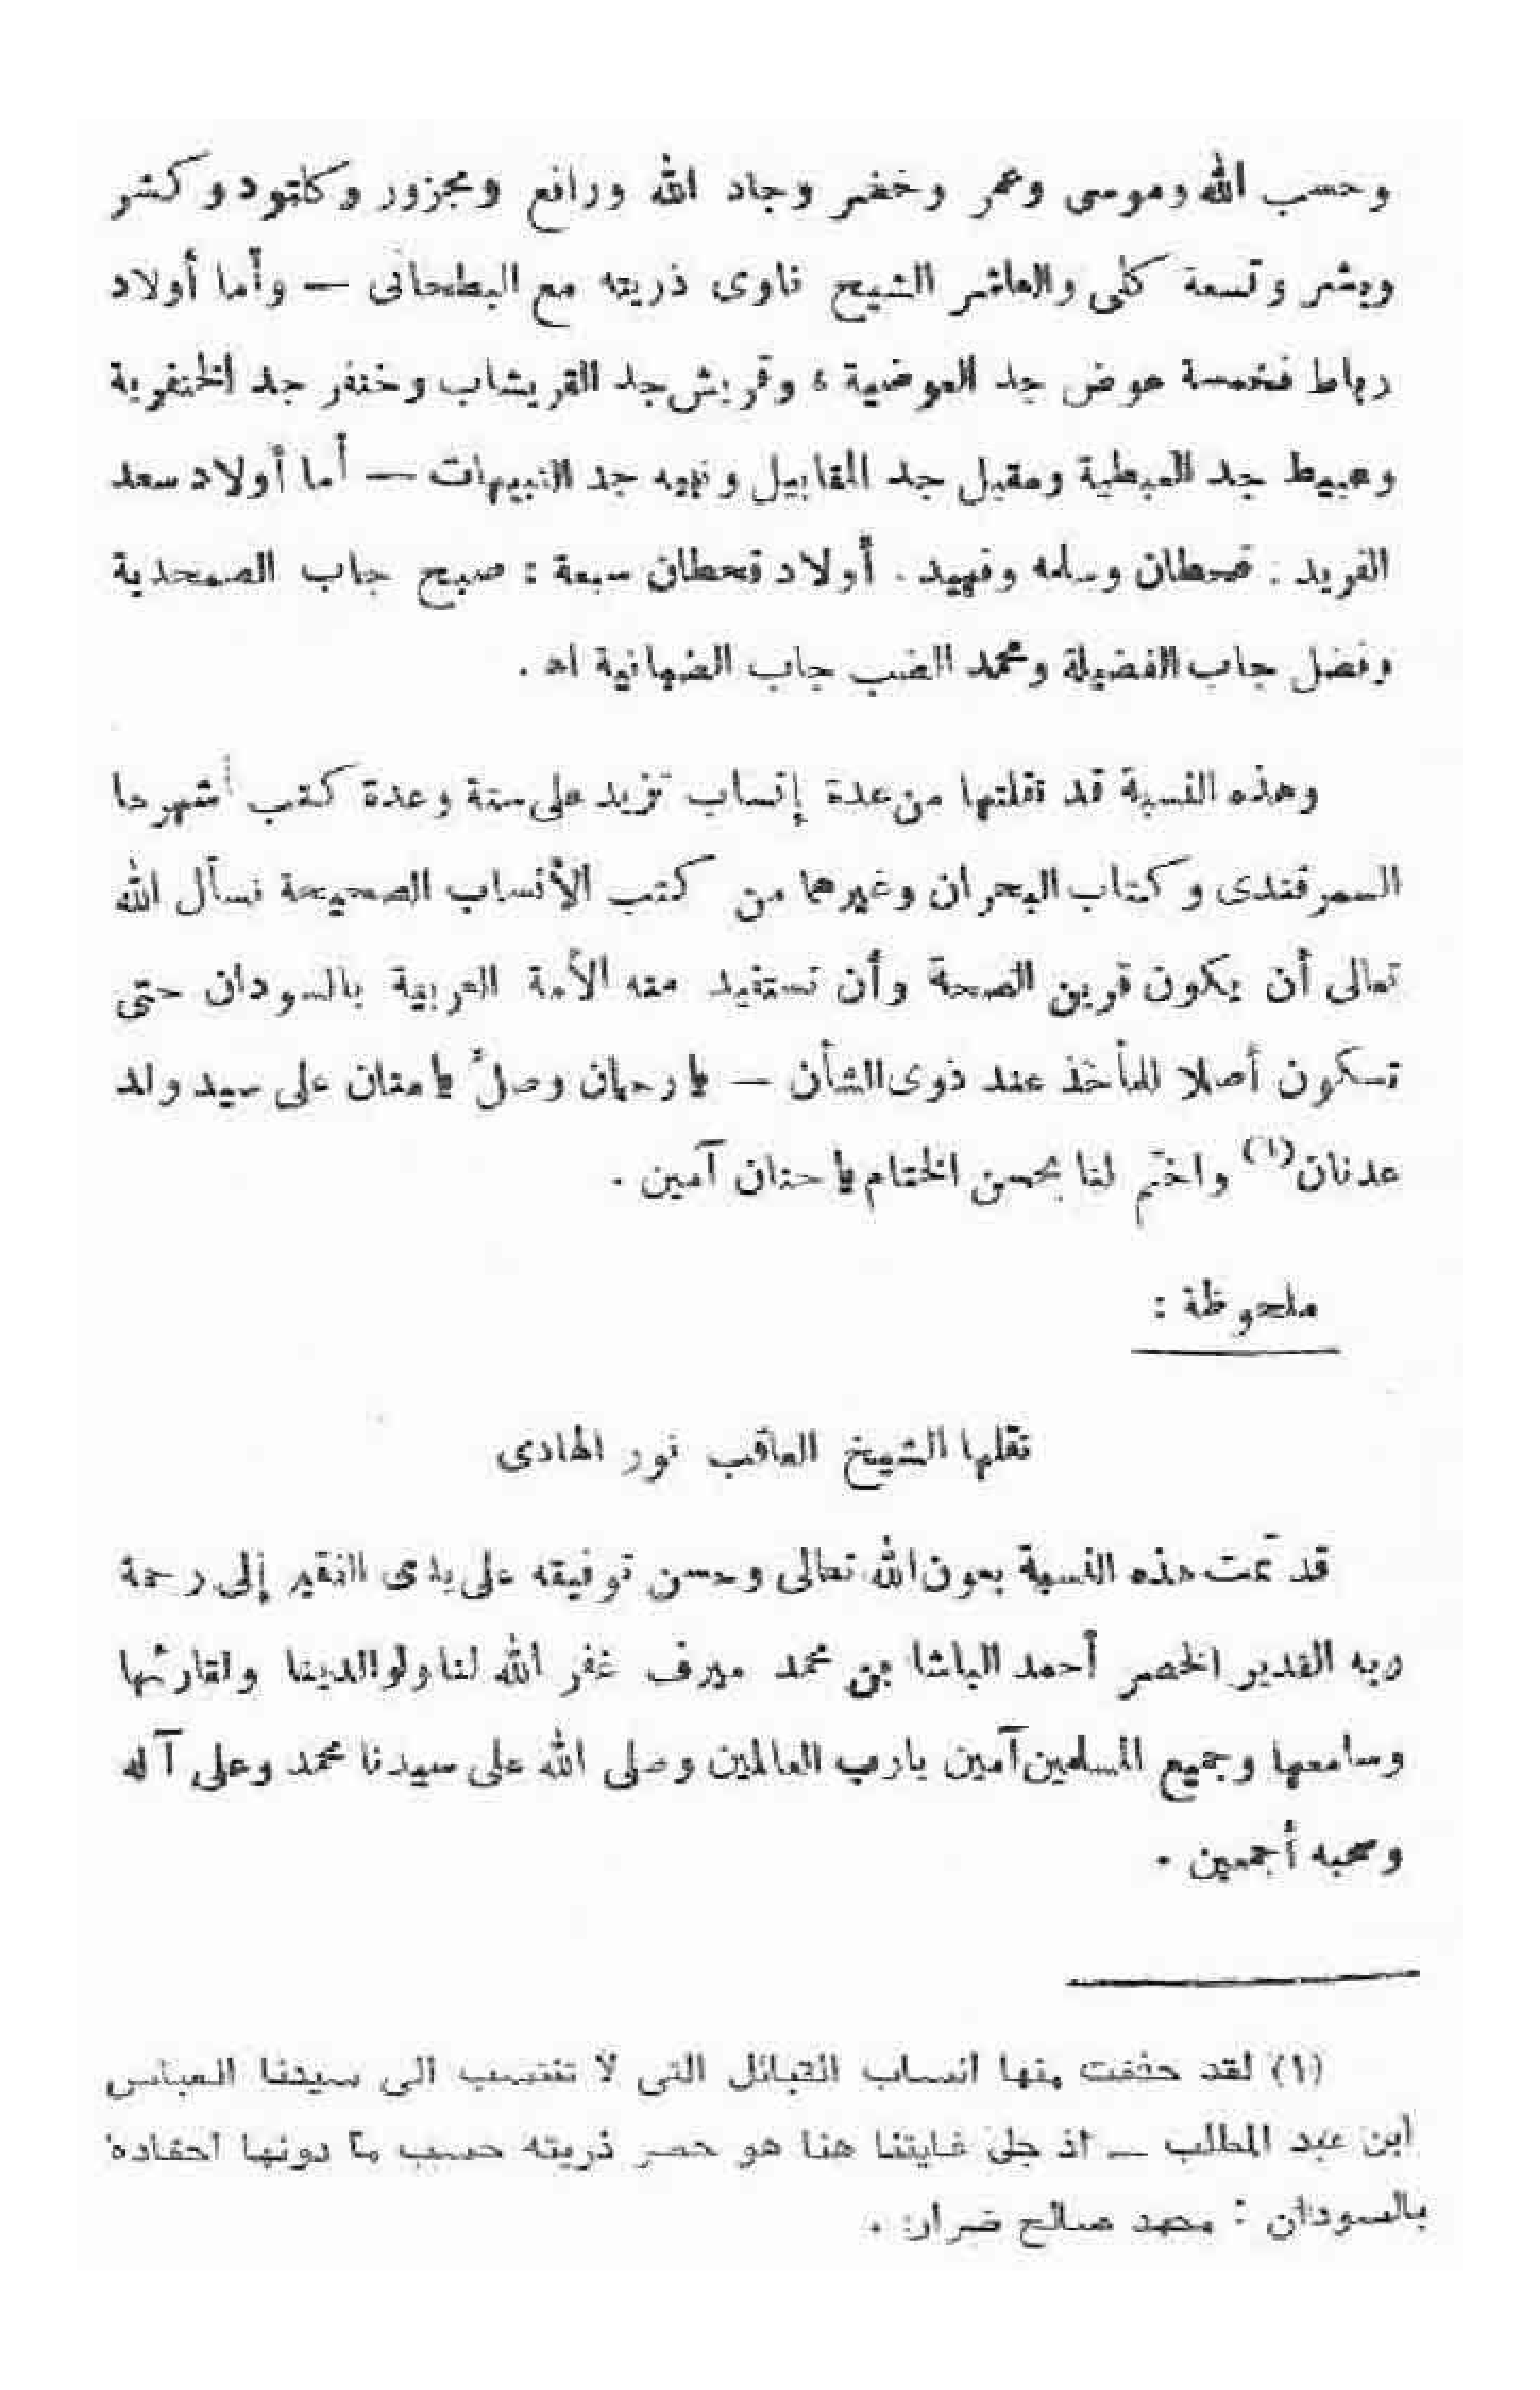 وحسب الله وموسى وعمر وخضر وجاد الله ورافع ومجزور وكاتود وكشر
وبشر وتسعة كلى والعاشر الشيخ ناوى ذريته مع البطحانى — وأما أولاد
رباط فخمسة عوض جد العوضية ، وقريش جد القريشاب وخنفر جد الخنفرية
وعبيط جد العبطية ومقبل جد المقابيل ونبيه جد النبيهات — أما أولاد سعد
الفريد : قحطان وسلمه وفهيد . أولاد قحطان سبعة : صبح جاب الصمحدية
وفضل جاب الفضيلة ومحمد الضب جاب الضبانية اه .
وهذه النسبة قد نقلتها من عدة إنساب تزيد على ستة وعدة كتب أشهرها
السمرقندى وكتاب البحران وغيرهما من كتب الأنساب الصحيحة نسأل الله
تعالى أن يكون قرين الصحة وأن تستفيد منه الأمة العربية بالسودان حتى
تسكون أصلا للمأخذ عند ذوى الشأن — يا رحمان وصلّ يا منان على سيد ولد
عدنان (١) واختم لنا بحسن الختام يا حنان آمين .
ملحوظة :
نقلها الشيخ العاقب نور الهادى
قد تمت هذه النسبة بعون الله تعالى وحسن توفيقه على يدى الفقير إلى رحمة
ربه القدير الخضر أحمد الباشا بن محمد ميرف غفر الله لنا ولوالدينا ولقارئها
وسامعها وجميع المسلمين آمين يارب العالمين وصلى الله على سيدنا محمد وعلى آله
وصحبه أجمعين .
(١) لقد حذفت منها انساب القبائل التى لا تنتسب الى سيدنا العباس
ابن عبد المطلب — اذ جل غايتنا هنا هو حصر ذريته حسب ما دونها احفاده
بالسودان : محمد صالح ضرار .